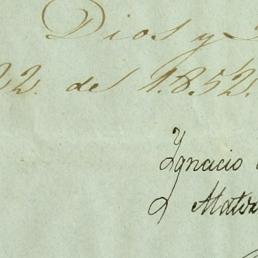 Dios y
22. de 1.852.
Ygnacio
Mator